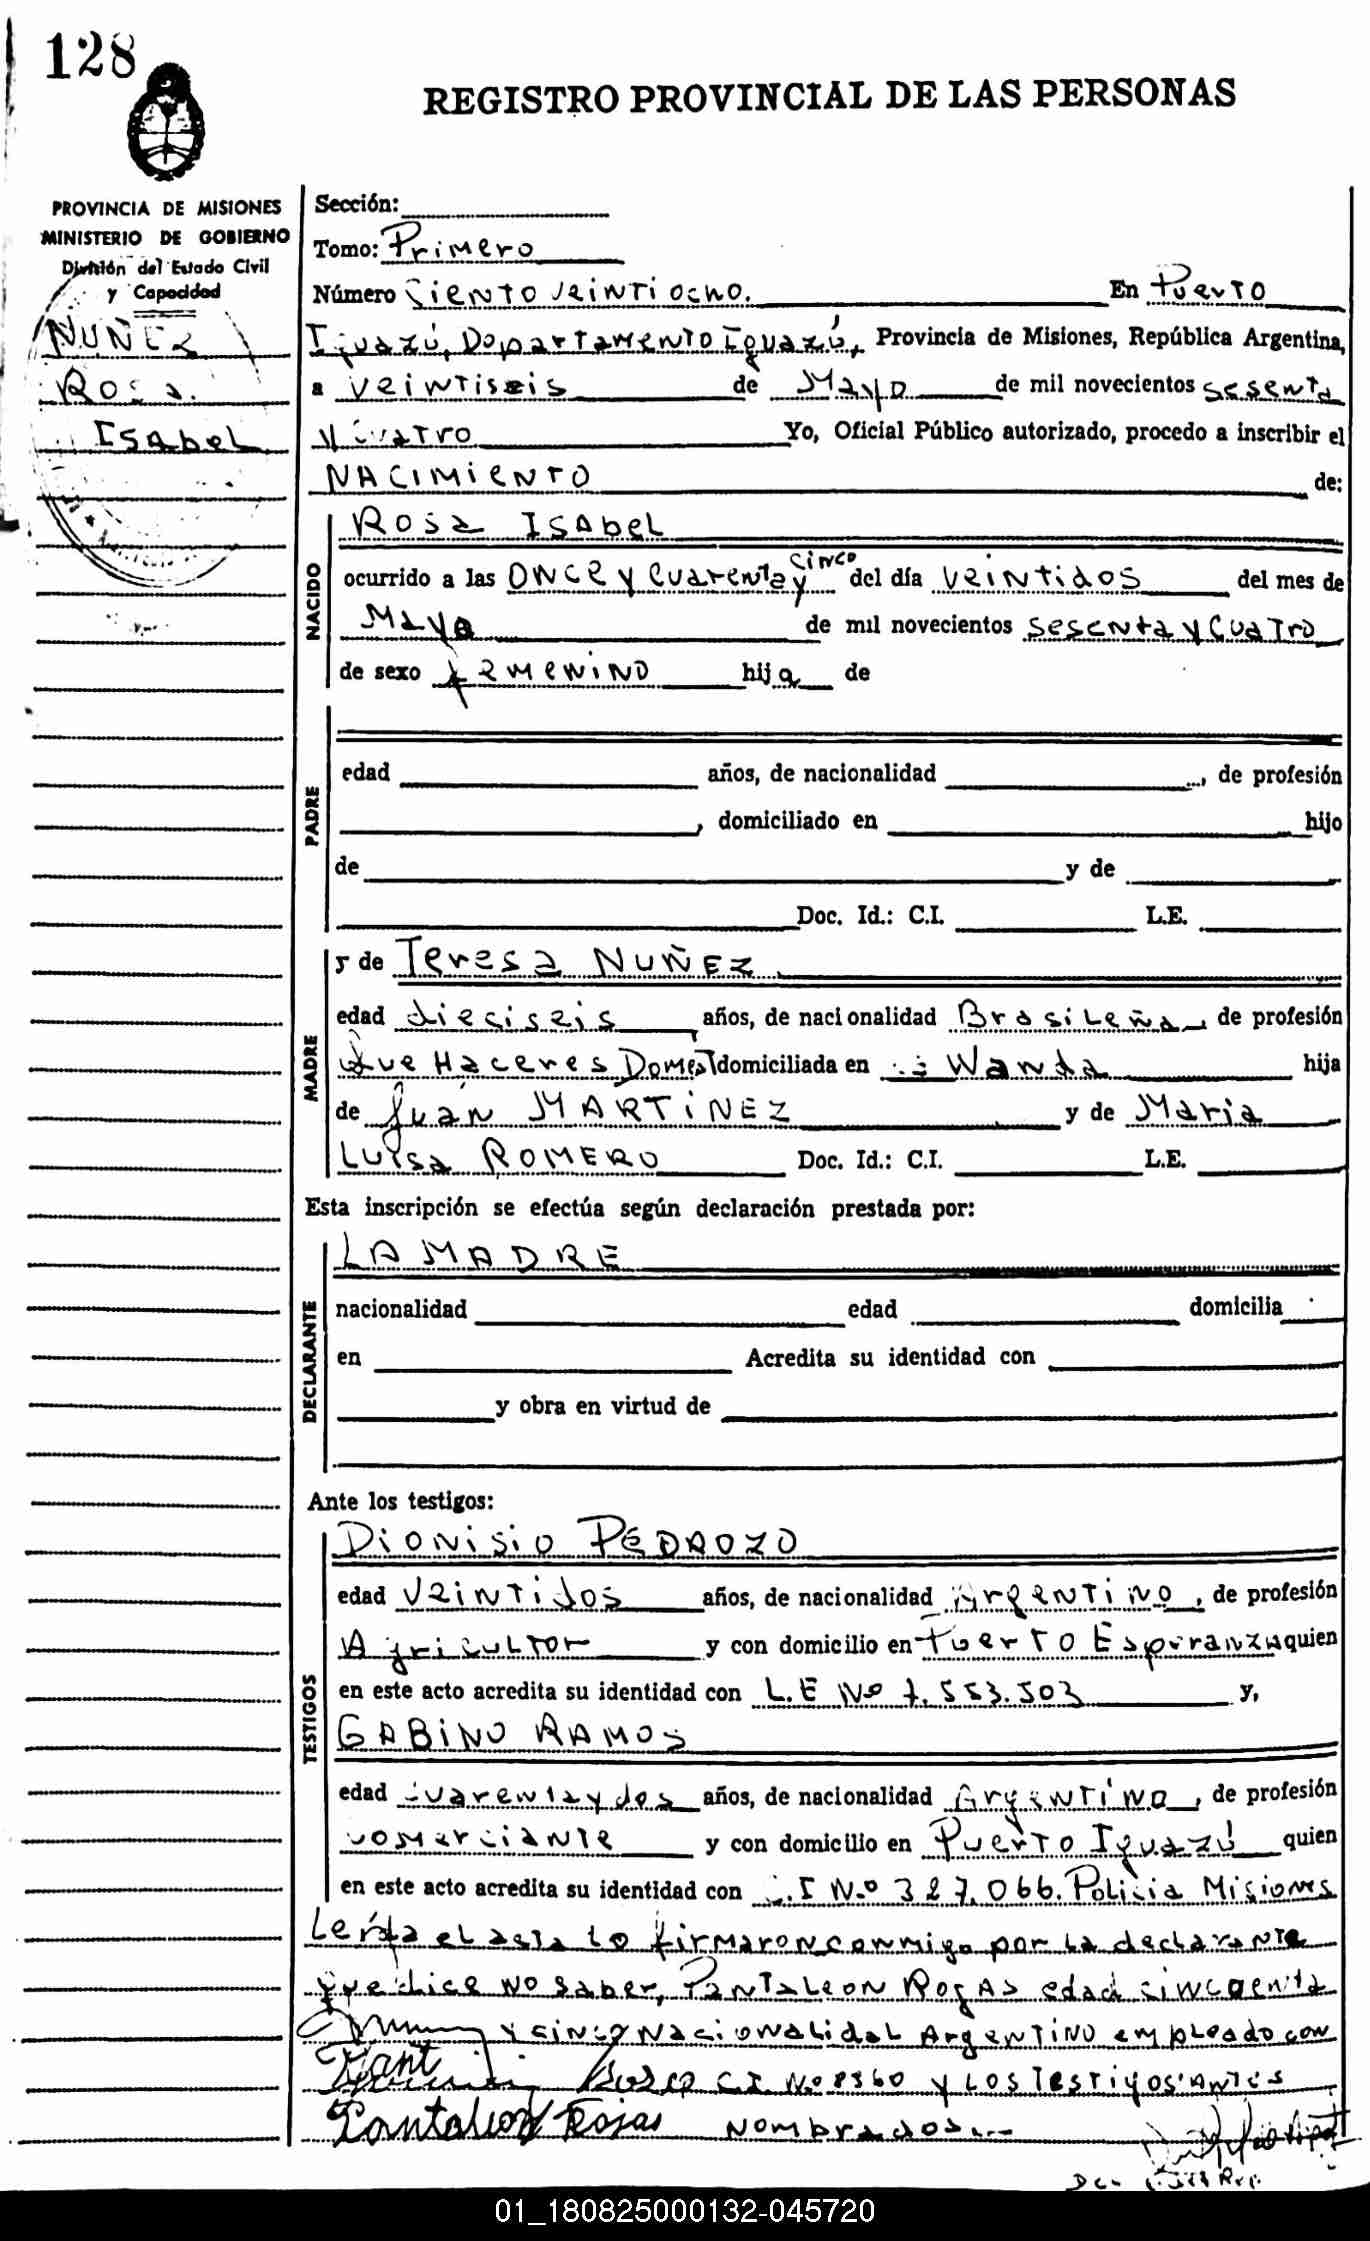 128
REGISTRO PROVINCIAL DE LAS PERSONAS
PROVINCIA DE MISIONES
MINISTERIO DE GOBIERNO
División del Estado Civil
y Capacidad
NUÑEZ
Rosa
Isabel
Sección:
Tomo: Primero
Número Ciento veintiocho. En Puerto
Iguazú, Departamento Iguazú, Provincia de Misiones, República Argentina,
a veintiseis de Mayo de mil novecientos sesenta
y cuatro Yo, Oficial Público autorizado, procedo a inscribir el
NACIMIENTO de:
NACIDO
Rosa Isabel
ocurrido a las once y cuarenta y cinco del día veintidos del mes de
Mayo de mil novecientos sesenta y cuatro
de sexo femenino hija de
PADRE
edad años, de nacionalidad , de profesión
, domiciliado en hijo
de y de
Doc. Id.: C.I. L.E.
MADRE
y de Teresa NUÑEZ
edad dieciseis años, de nacionalidad Brasileña, de profesión
Que Haceres Domést domiciliada en Wanda hija
de Juan MARTINEZ y de Maria
Luisa ROMERO Doc. Id.: C.I. L.E.
Esta inscripción se efectúa según declaración prestada por:
DECLARANTE
LA MADRE
nacionalidad edad domicilia
en Acredita su identidad con
y obra en virtud de
Ante los testigos:
TESTIGOS
Dionisio PEDROZO
edad veintidos años, de nacionalidad Argentino, de profesión
Agricultor y con domicilio en Puerto Esperanza quien
en este acto acredita su identidad con L.E Nº 7.553.503 y,
GABINO RAMOS
edad cuarenta y dos años, de nacionalidad Argentino, de profesión
comerciante y con domicilio en Puerto Iguazú quien
en este acto acredita su identidad con C.I N.º 327.066. Policia Misiones
Leida el acta lo firmaron conmigo por la declarante
que dice no saber, Pantaleon Rojas edad cincuenta
y cinco nacionalidad Argentino empleado con
C.I. Nº 8360 y los testigos antes
Pantaleon Rojas nombrados.--
01_180825000132-045720